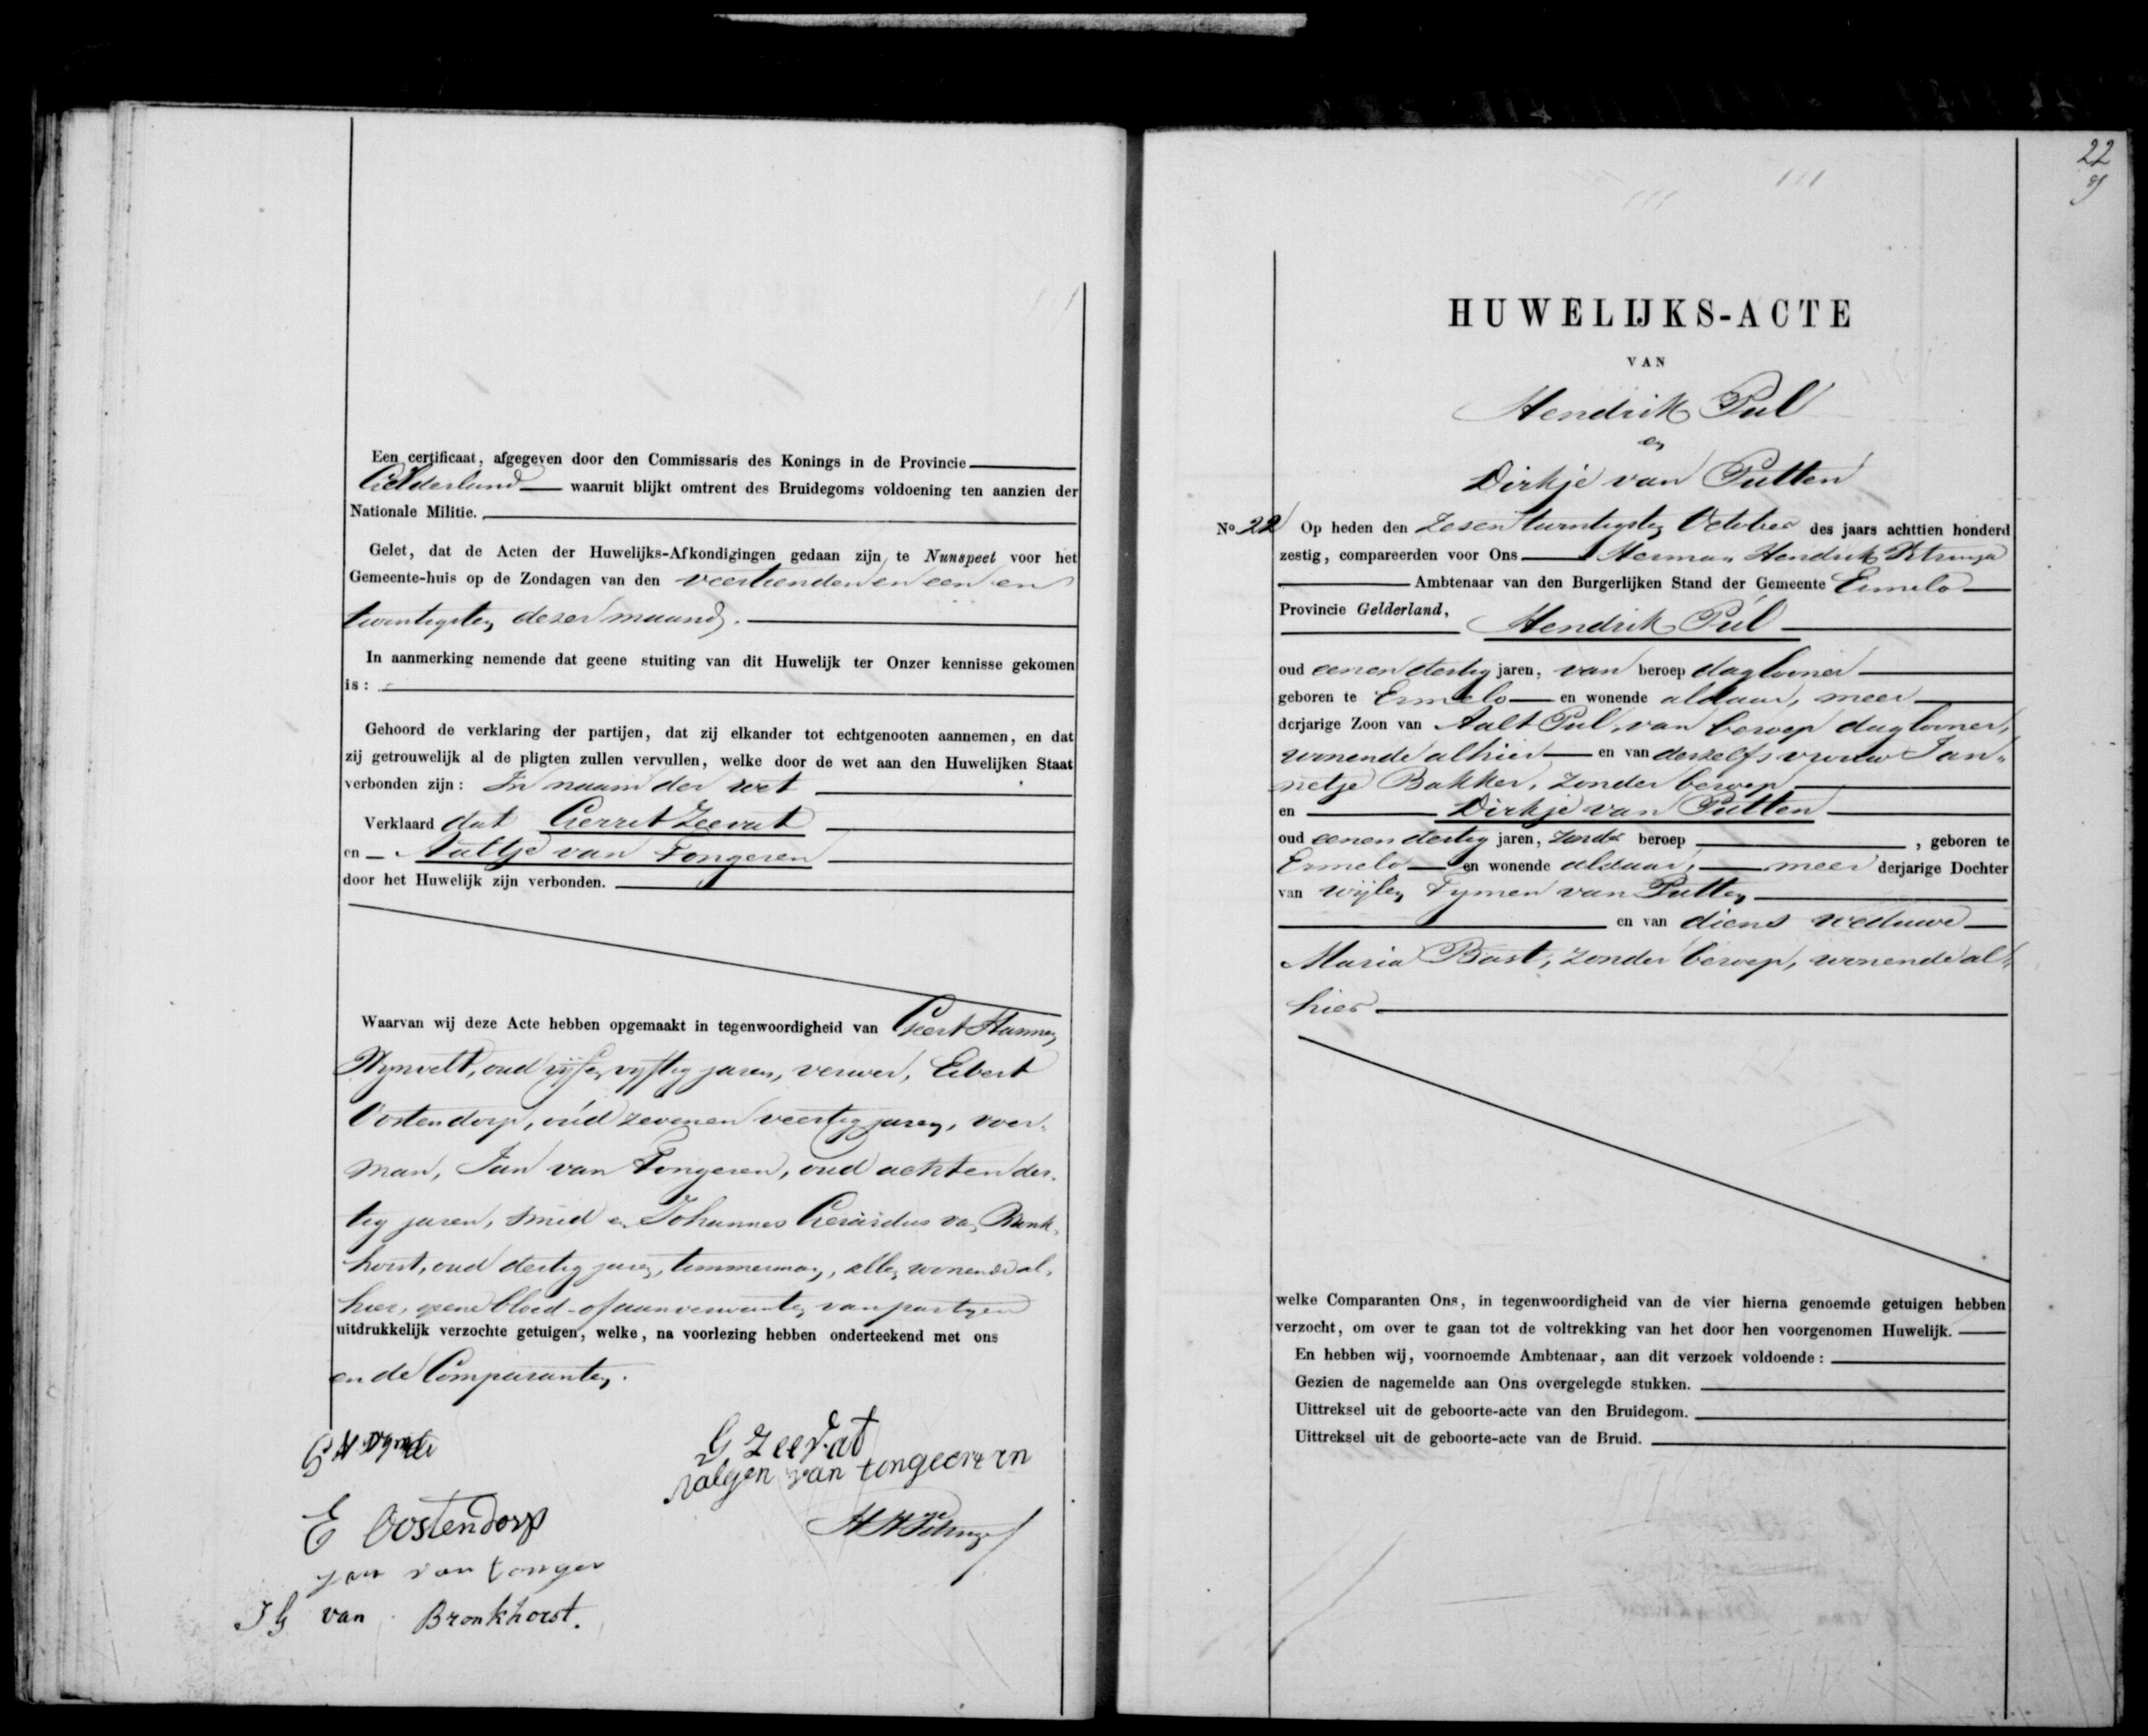 Een certificaat, afgegeven door den Commissaris des Konings in de Provincie
Gelderland waaruit blijkt omtrent des Bruidegoms voldoening ten aanzien der
Nationale Militie.
Gelet, dat de Acten der Huwelijks-Afkondigingen gedaan zijn te Nunspeet voor het
Gemeente-huis op de Zondagen van den veertienden en een en
twintigsten dezer maand.
In aanmerking nemende dat geene stuiting van dit Huwelijk ter Onzer kennisse gekomen
is:
Gehoord de verklaring der partijen, dat zij elkander tot echtgenooten aannemen, en dat
zij getrouwelijk al de pligten zullen vervullen, welke door de wet aan den Huwelijken Staat
verbonden zijn: In naam der wet
Verklaard dat Gerrit Zeevat
en Aaltje van Tongeren
door het Huwelijk zijn verbonden.
Waarvan wij deze Acte hebben opgemaakt in tegenwoordigheid van Geert Hannes
oud vijfen vyftig jaren, verwer, Eibert
Oostendorp, oud zevenen veertig jaren, voer-
man, Jan van Tongeren, oud achtenden der-
tig jaren, smid en Johannes Gerardus van Bronk-
horst, oud dertig jaren, timmerman, allen wonende al-
hier, geene bloed- of aanverwanten van partyen
uitdrukkelijk verzochte getuigen, welke, na voorlezing hebben onderteekend met ons
en de Comparanten.
G Zeevat
aalgen van tongeeren
E Oostendorp
Jan van tonger
J G van Bronkhorst.
22
HUWELIJKS-ACTE
VAN
Hendrik Pul
en
Dirkje van Putten
No. 22 Op heden den Zesen twintigsten October des jaars achttien honderd
zestig, compareerden voor Ons Herman Hendrik
Ambtenaar van den Burgerlijken Stand der Gemeente Ermelo
Provincie Gelderland, Hendrik Pul
oud eenen dertig jaren, van beroep daglooner
geboren te Ermelo en wonende aldaar, meer
derjarige Zoon van Aalt Pul, van beroep daglooner,
wonende alhier en van deszelfs vrouw Jan-
netje Bakker, zonder beroep
en Dirkje van Putten
oud eenen dertig jaren, zonder beroep , geboren te
Ermelo en wonende aldaar, meer derjarige Dochter
van wijlen Tymen van Putten
en van diens weduwe
Maria Bast, zonder beroep, wonende al-
hier
welke Comparanten Ons, in tegenwoordigheid van de vier hierna genoemde getuigen hebben
verzocht, om over te gaan tot de voltrekking van het door hen voorgenomen Huwelijk.
En hebben wij, voornoemde Ambtenaar, aan dit verzoek voldoende:
Gezien de nagemelde aan Ons overgelegde stukken.
Uittreksel uit de geboorte-acte van den Bruidegom.
Uittreksel uit de geboorte-acte van de Bruid.